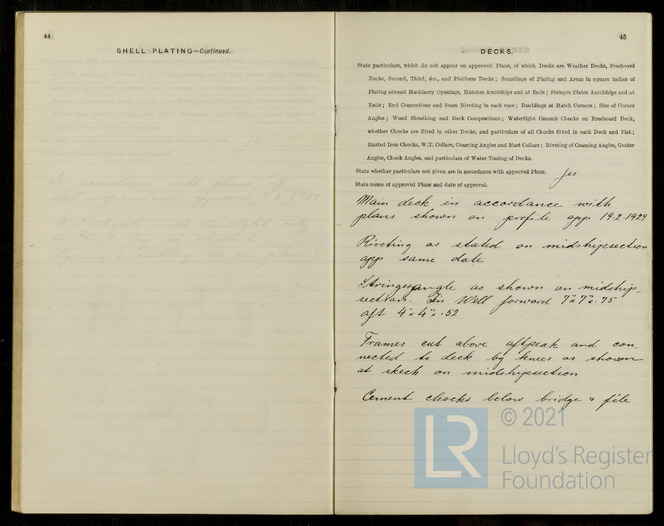 44
SHELL PLATING—Continued.
45
DECKS.
State particulars, which do not appear on approved Plans, of which Decks are Weather Decks, Freeboard
Decks, Second, Third, &c., and Platform Decks; Scantlings of Plating and Areas in square inches of
Plating abreast Machinery Openings, Hatches Amidships and at Ends; Stringer Plates Amidships and at
Ends; End Connections and Seam Riveting in each case; Doublings at Hatch Corners; Size of Corner
Angles; Wood Sheathing and Deck Compositions; Watertight Cement Chocks on Freeboard Deck,
whether Chocks are fitted in other Decks, and particulars of all Chocks fitted in each Deck and Flat;
Rusted Iron Chocks, W.T. Collars, Coaming Angles and Mast Collars; Riveting of Coaming Angles, Gutter
Angles, Chock Angles, and particulars of Water Testing of Decks.
State whether particulars not given are in accordance with approved Plans. yes
State name of approved Plans and date of approval.
Main deck in accordance with
plans shown on profile app 19.2.1929
Riveting as stated on midshipsection
app same date
Stringerangle as shown on midship-
section. In Well forward 7"x7"x.75
aft 4"x4"x.52
Frames cut above aftpeak and con-
nected to deck by knees as shown
at skech on midshipsection
Cement chocks below bridge &
© 2021
LR
Lloyd's Register
Foundation